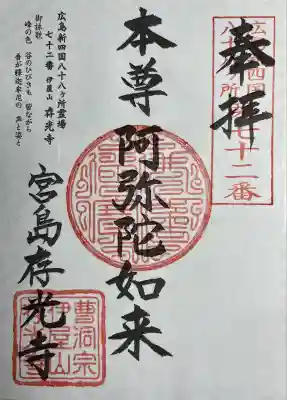 奉拝
広島新四国
八十八ヶ所
七十二番
本尊 阿弥陀如来
宮島存光寺
曹洞宗
伊屋山
存光寺
広島新四国八十八ヶ所霊場
七十二番 伊屋山 存光寺
御詠歌
峰の色 谷のひびきも 皆ながら
吾が釋迦牟尼の 声と姿と